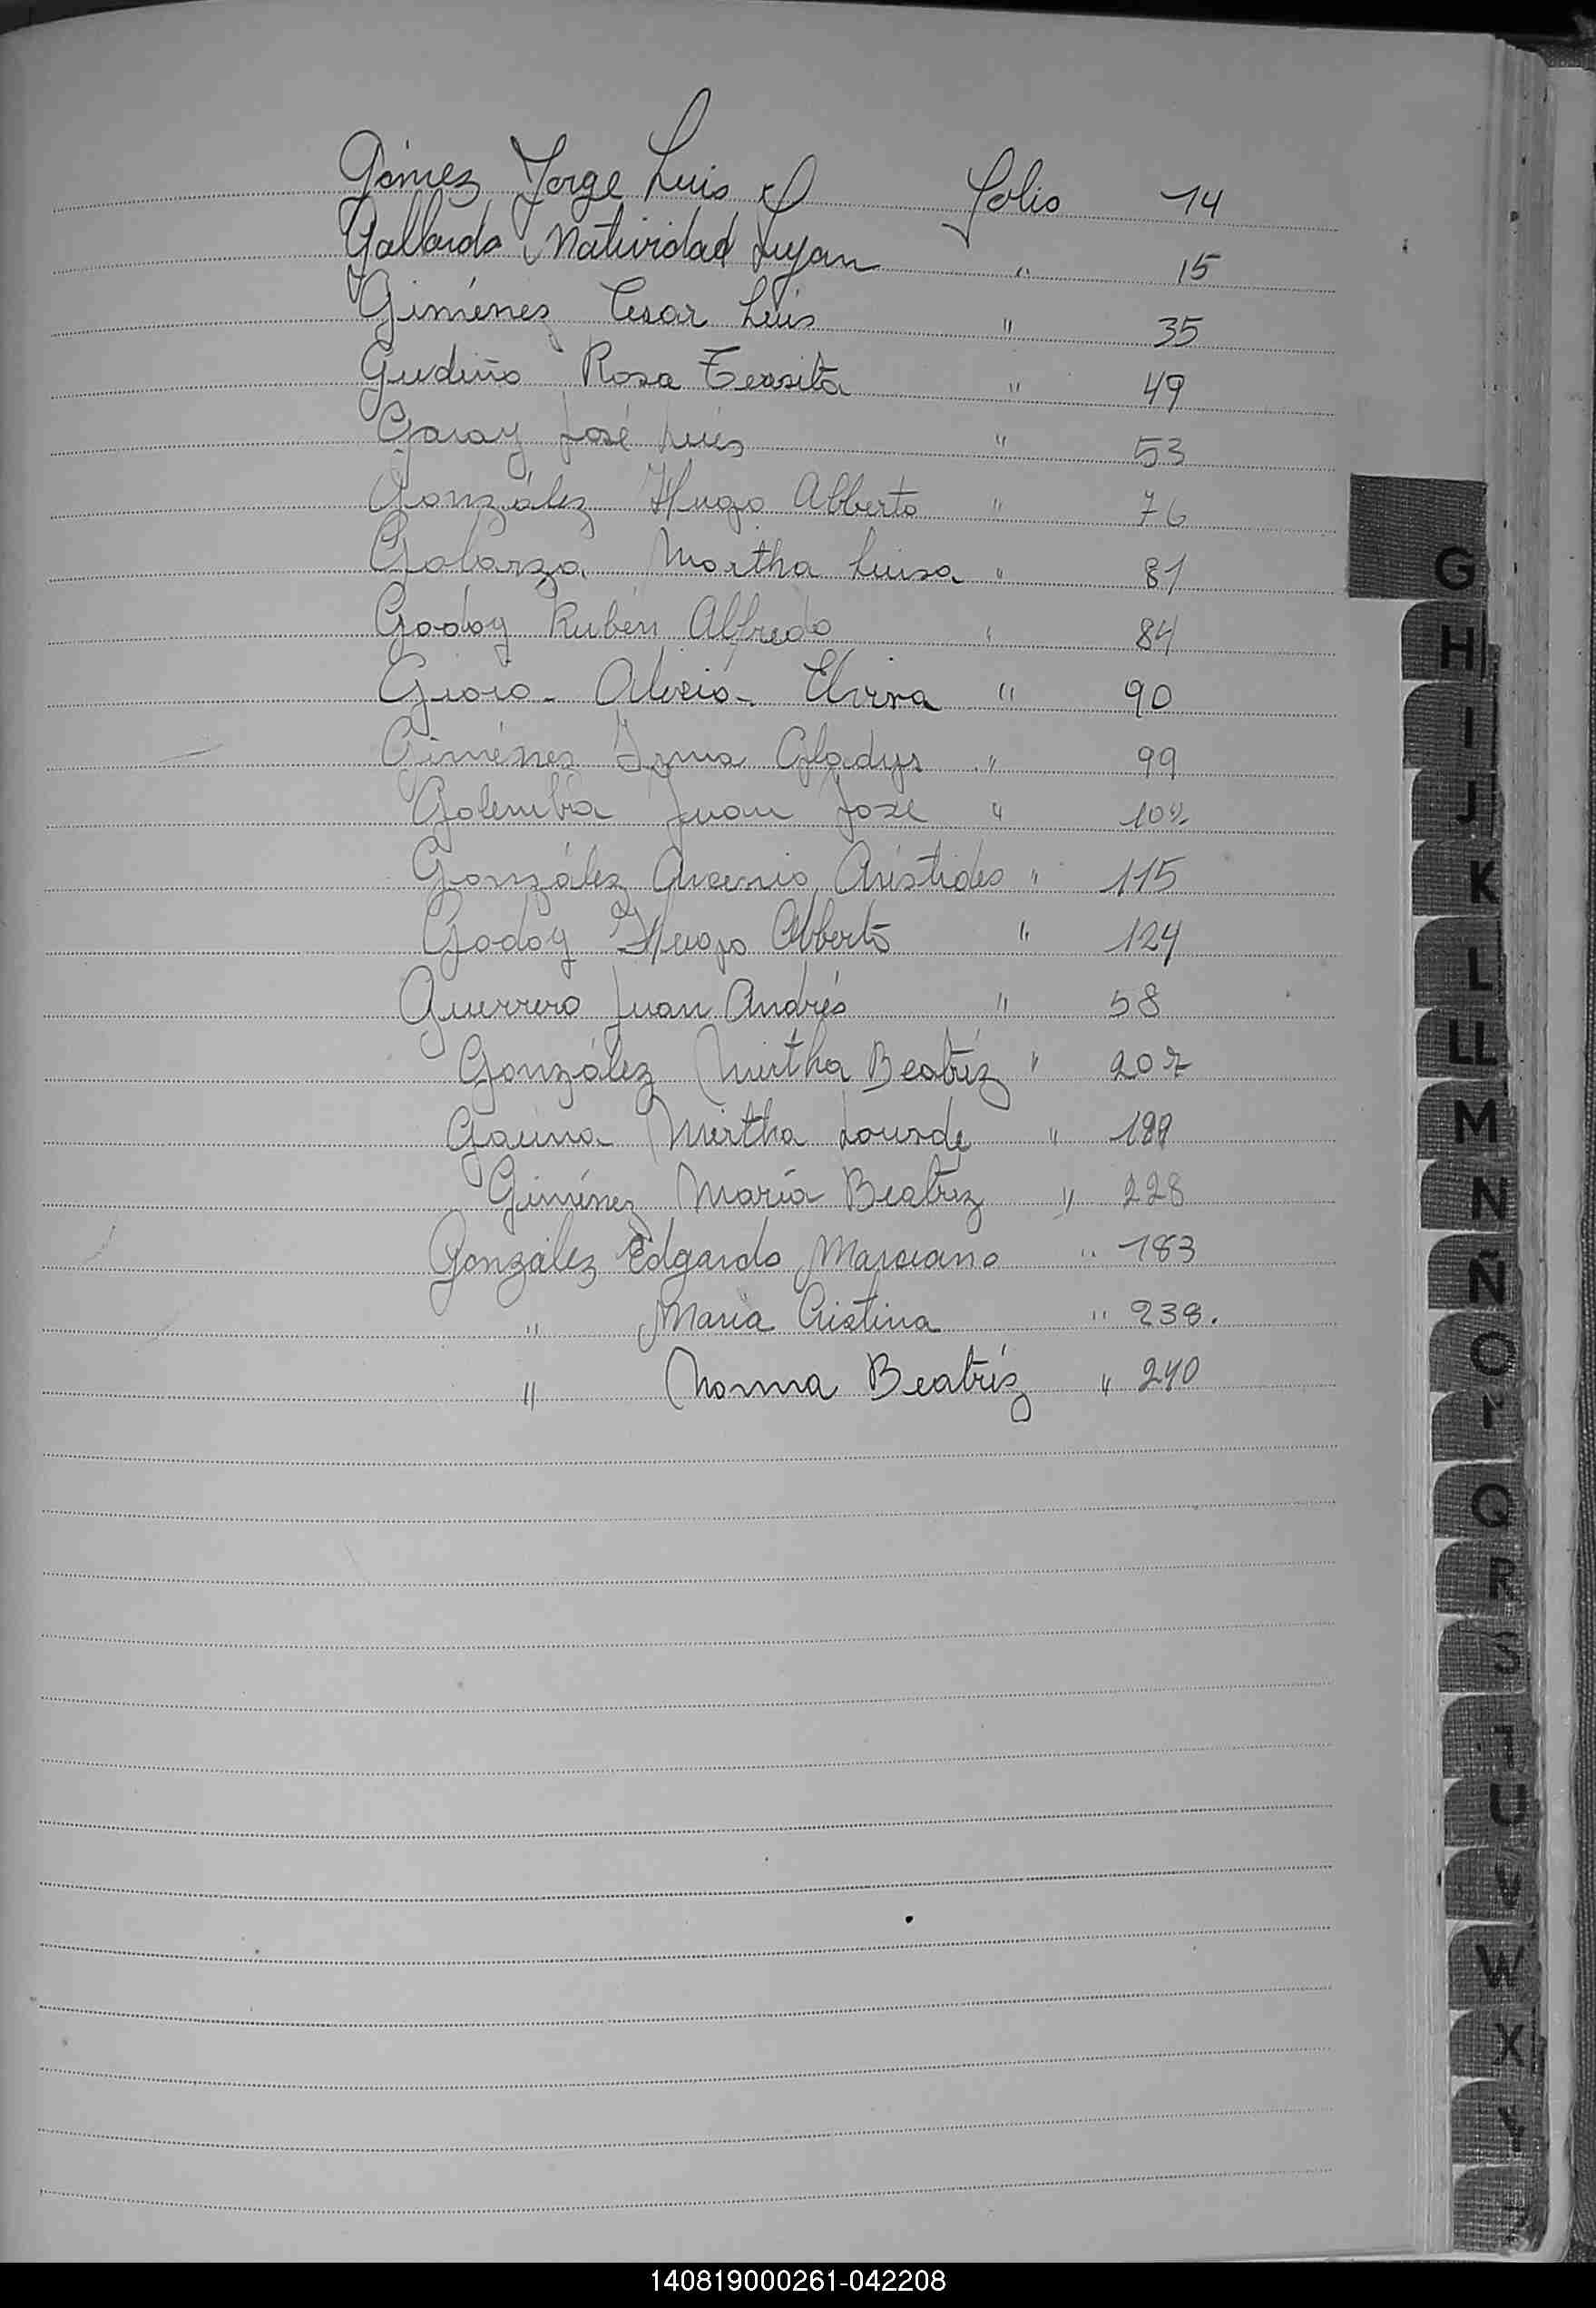 Gómez Jorge Luis Folio 14
Gallardo Natividad Lujan " 15
Giménez Cesar Luis " 35
Gudiño Rosa Teresita " 49
Garay José Luis " 53
González Hugo Alberto " 76
Galarza Martha Luisa " 81
Godoy Rubén Alfredo " 84
Gioro - Alicia - Elvira " 90
Giménez Irma Gladys " 99
Golembia Juan José "
González Arcenio Arístides " 115
Godoy Hugo Alberto " 124
Guerrero Juan Andrés " 58
González Mirtha Beatríz " 207
Gauna Mirtha Lourde "
Giménez María Beatriz " 228
González Edgardo Marciano " 183
" María Cristina " 238.
" Norma Beatríz " 240
G
H
I
J
K
L
LL
M
N
Ñ
O
Q
R
S
T
U
V
W
X
Y
140819000261-042208